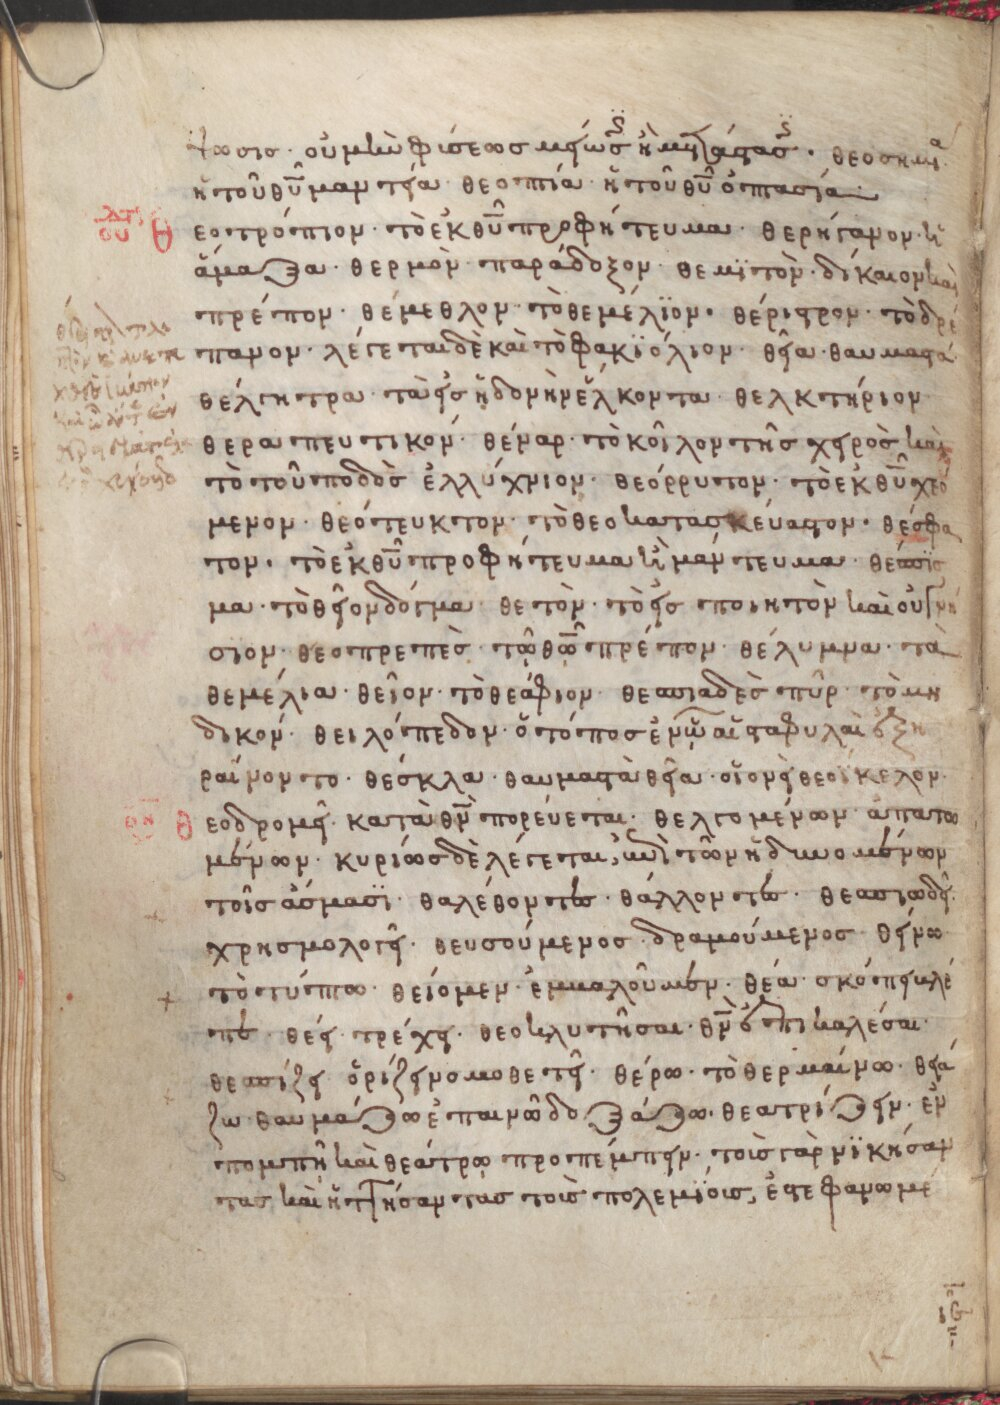 λωσις · οὐ μὴν φύσεως μείωσις ἢ μετάστασις · θεοσημία
ἢ τοῦ θυ μαντεία · θεοπτία · ἢ τοῦ θυ ὀπτασία
ατ ου
θεοτρόπιον · τὸ ἐκ θυ προφήτευμα · θερήγανον · ἡ
ἅμαξα · θερμὸν · παράδοξον · θεμϊτὸν · δίκαιον καὶ
πρέπον · θέμεθλον · τὸ θεμέλϊον · θέριστρον · τὸ δρέ
πανον · λέγεται δὲ καὶ τὸ φακϊόλιον · θεῖα · θαυμαστά ·
θέλγητρα · τὰ εἰς ἡδονὴν ἕλκοντα · θελκτήριον
θεραπευτικόν · θέναρ · τὸ κοῖλον τῆς χειρὸς καὶ
τὸ τοῦ ποδὸς ἐλλύχνιον · θεόρρυτον · τὸ ἐκ θυ χεό
μενον · θεότευκτον · τὸ θεοκατασκέυαστον · θέσφα
τον · τὸ ἐκ θυ προφήτευμα ἢ μάντευμα · θέσπϊς
μα · τὸ θεῖον δόγμα · θετὸν · τὸ εἰσποιητὸν καὶ οὐ γνή
σϊον · θεοπρεπὲς · τῷ θω πρέπον · θέλυμνα · τὰ
θεμέλια · θεῖον · τὸ θεάφιον · θεσπιαδὲς πῦρ · τὸ μη
δικόν · θειλόπεδον · ὁ τόπος ἐν ᾧ αἱ σταφυλαὶ ἐξη
ραίνοντο · θέσκλα · θαυμαστὰ θεῖα · οἱονεὶ θεοίκελον
θεοδρομεῖ · κατὰ θν πορέυεται · θελγομένων · ἀπατω
μένων · κυρίως δὲ λέγεται, ἐπὶ τῶν ἡδυνομένων
τοῖς ἄσμασϊ · θαλέθοντες · θάλλοντες · θεσπιωδεῖ ·
χρησμολογεῖ · θευσούμενος · δραμούμενος · θείνω
τὸ τύπτω · θείομεν · ἐκκαλοῦμεν · θέα · σκόπει βλέ
πε · θέει τρέχει · θεοκλυτῆσαι · θν ἐπικαλέσαι ·
θεσπίζει ὁρίζει νομοθετεῖ · θέρω · τὸ θερμαίνω · θειά
ζω · θαυμάζω ἐπαινῶ δοξάζω · θεατρίζειν · ἐν
πομπῇ καὶ θεάτρῳ προπέμπειν · τοὶς γὰρ νϊκήσαν
τας καὶ ἡττήσαντας τοὶς πολεμίοις, ἐστεφανωμέ